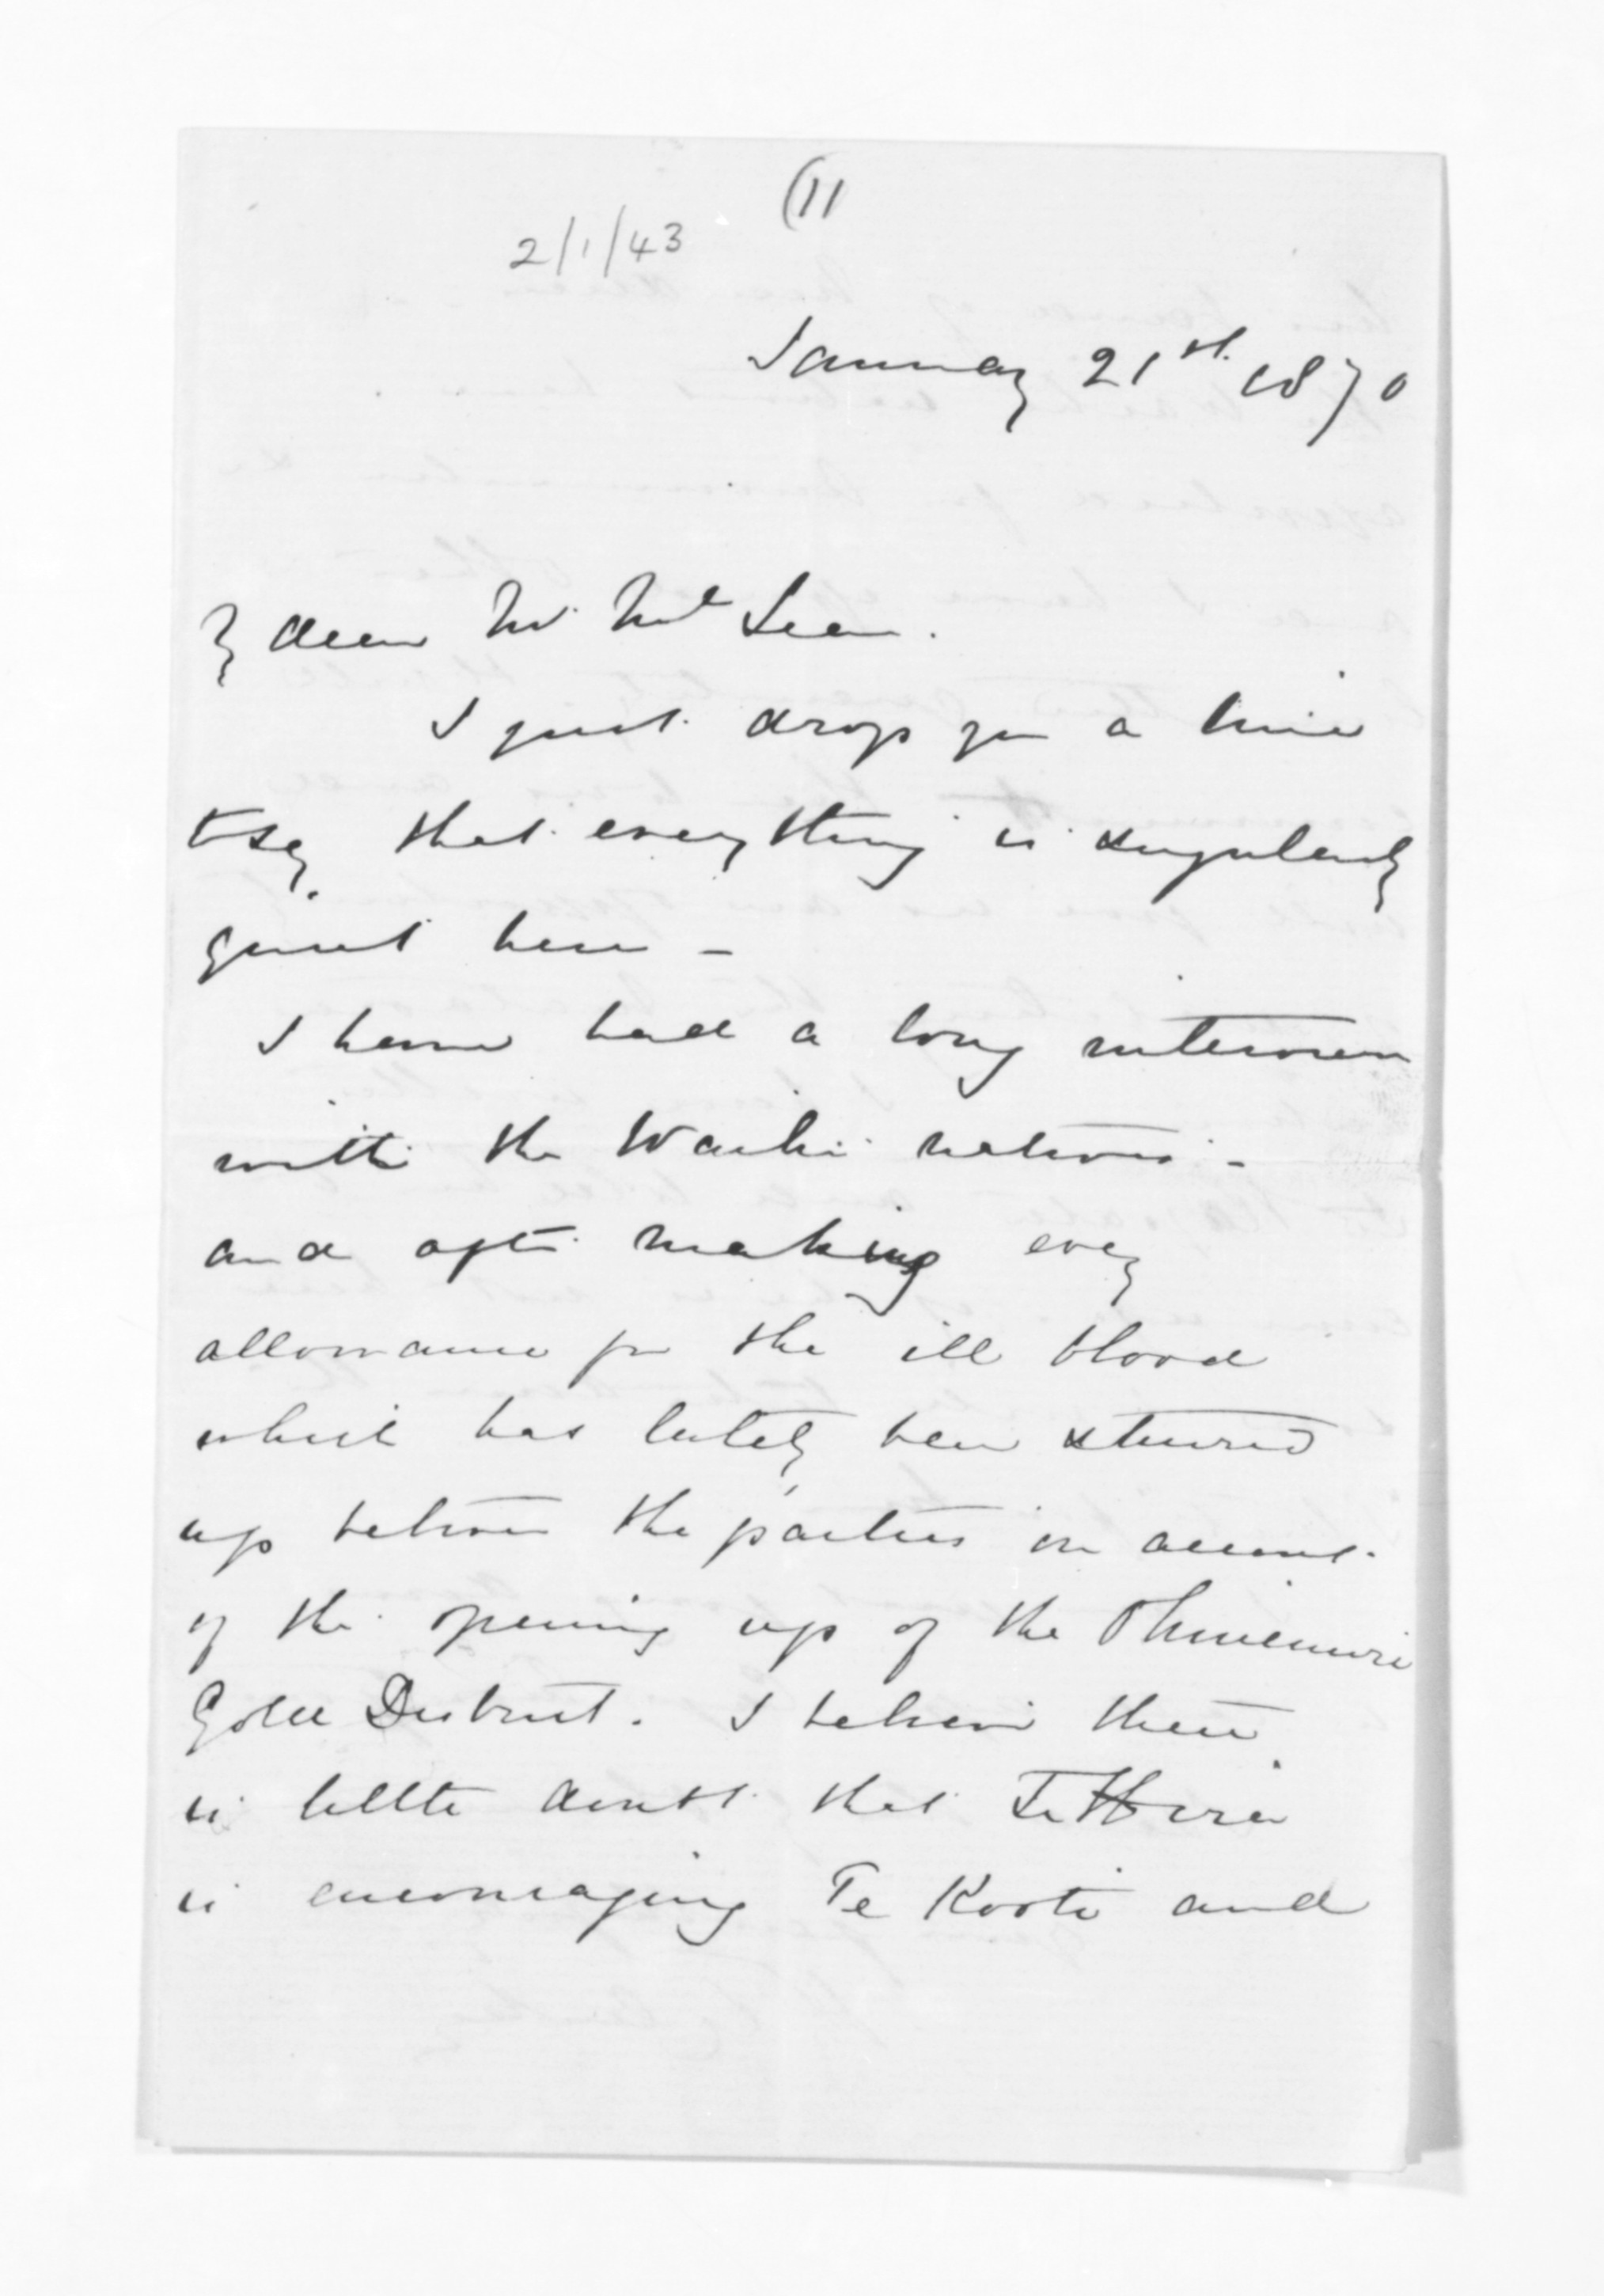 (11
2/1/43
January 21st. 1870
My dear Mr. McLean.
I just drop you a line
to say that everything is singularly
quiet here -
I have had a long interview
with the Waihi natives -
and after making every
allowance for the ill blood
which has lately been stirred
up between the parties on account
of the opening up of the Ohinemuri
Gold District. I believe there
is little doubt that Te Hira
is encouraging Te Kooti and